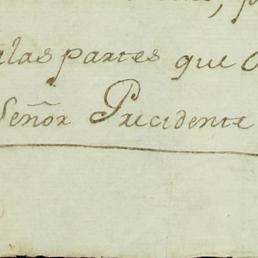 alas partes que
Señor Precidente